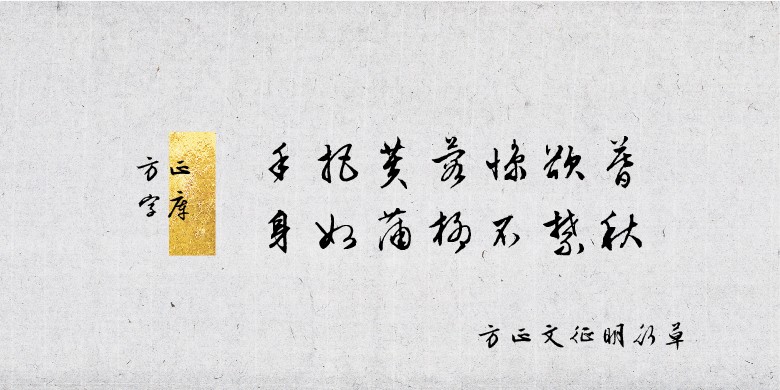 方正
字库
手把欲
身如蒲柳不禁秋
方正文征明行草